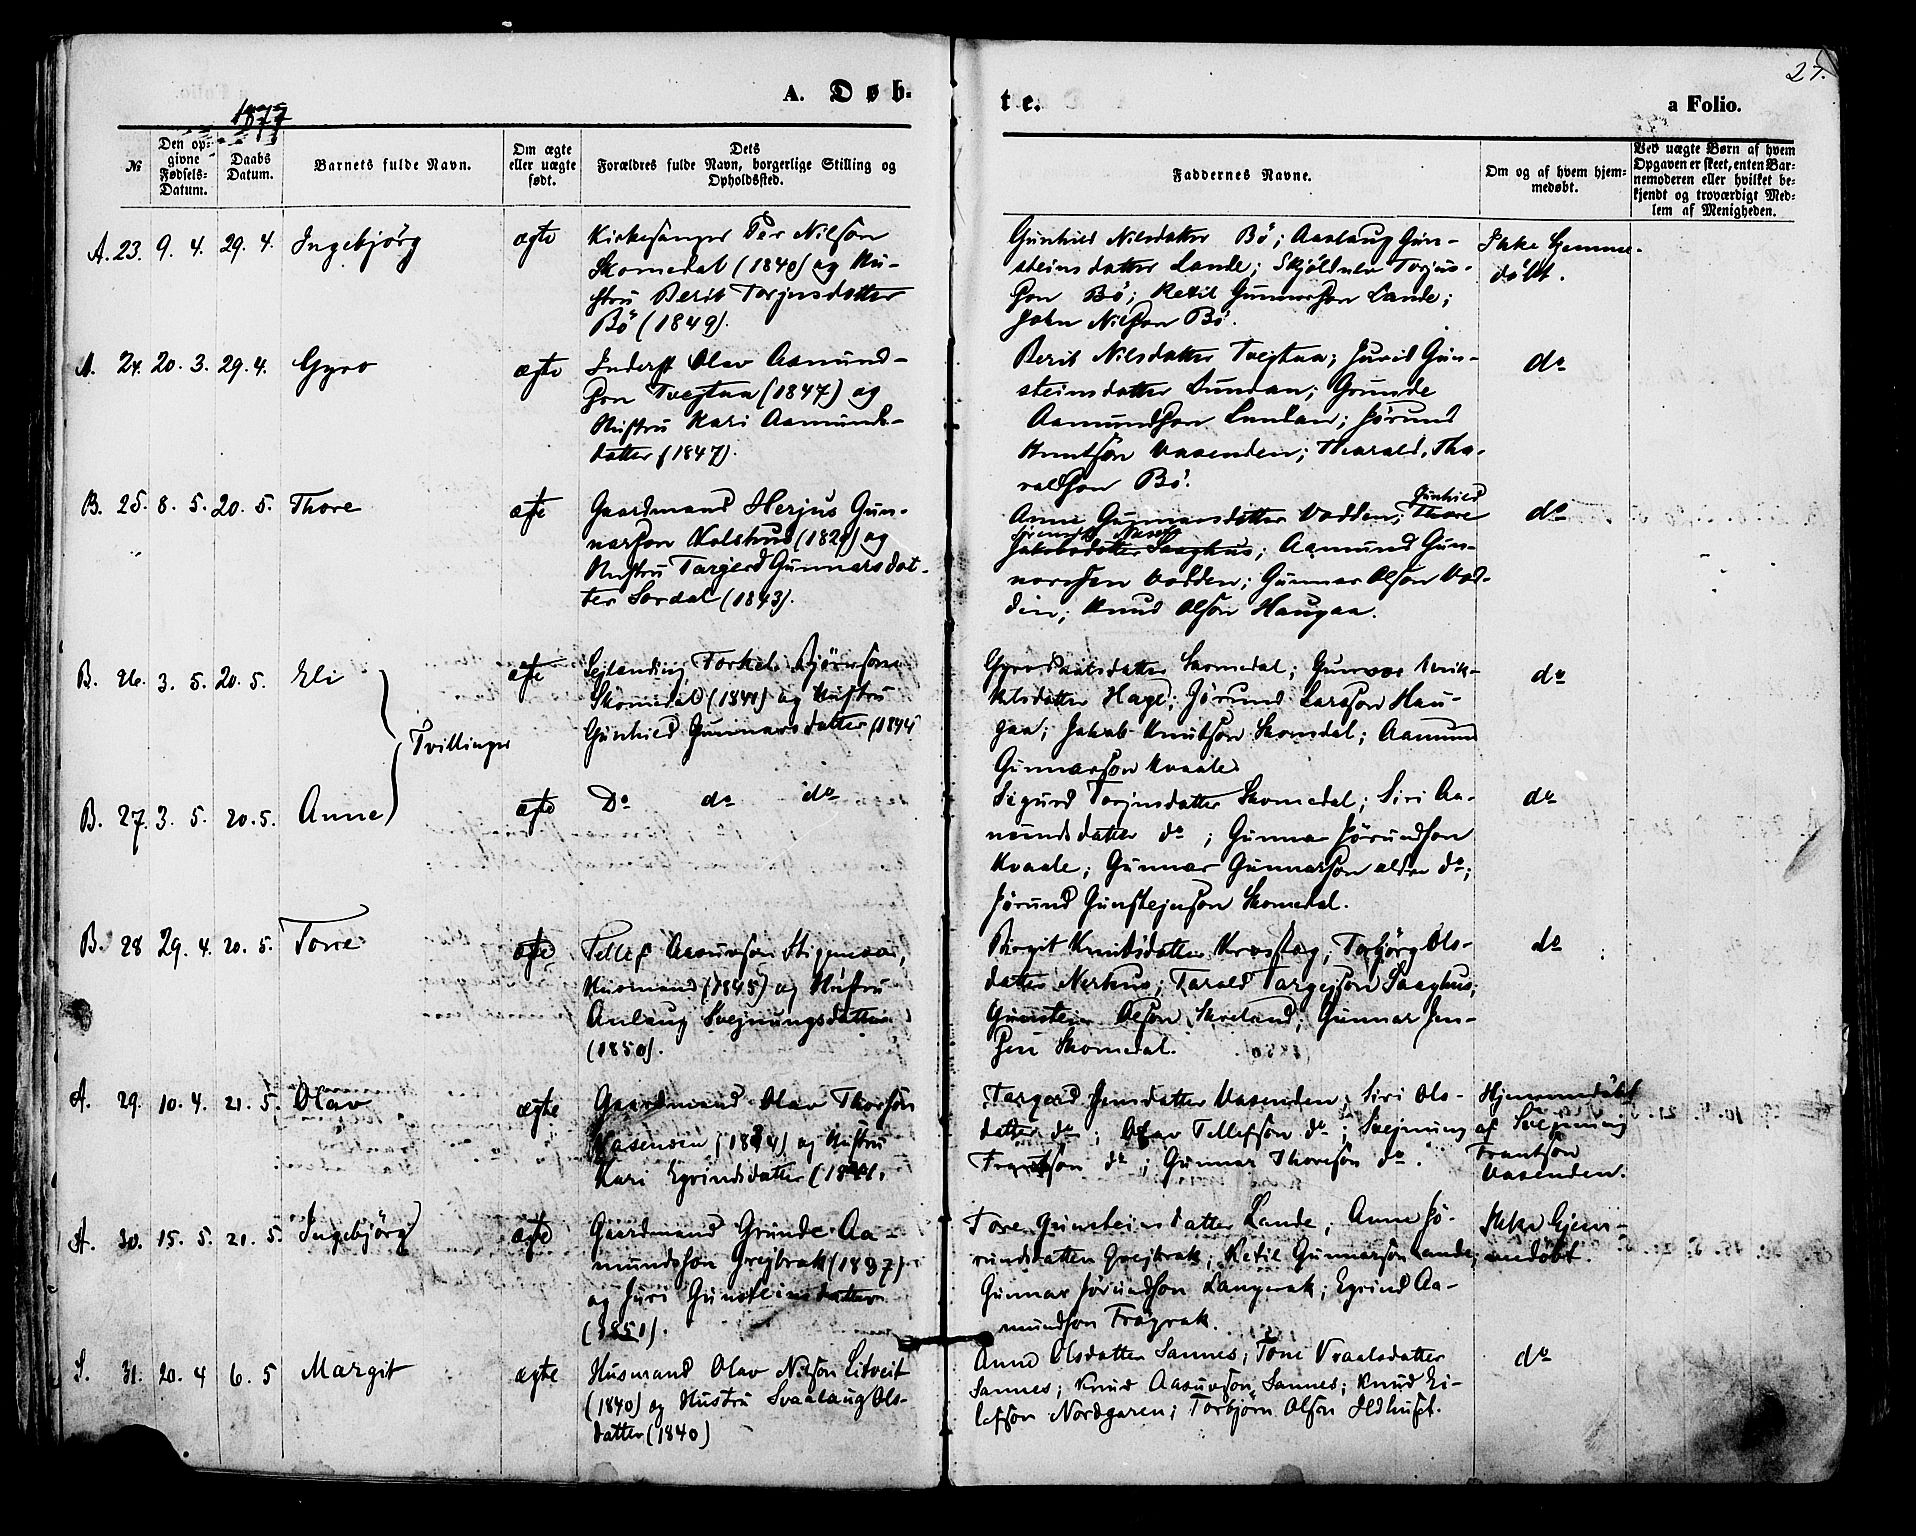 27.
1877
A. Døb-
te.
a Folio.
№
Den op-
givne
Fødsels-
Datum.
Daabs
Datum.
Barnets fulde Navn.
Om ægte
eller uægte
født.
Dets
Forældres fulde Navn, borgerlige Stilling og
Opholdssted.
Faddernes Navne.
Om og af hvem hjem-
medøbt.
Ved uægte Børn af hvem
Opgaven er skeet, enten Bar-
nemoderen eller hvilket be-
kjendt og troværdigt Med-
lem af Menigheden.
A. 23. 9. 4. 29. 4. Ingebjörg ægte
Kirkesanger Per Nilson
Skomedal (1840) og Hu-
stru Berit Torjusdatter
Bö (1849).
Gunhild Nilsdatter Bö; Aaslaug Gun-
steinsdatter Lande; Skjöldulv Torjus-
son Bö; Ketil Gunnarson Lande;
John Nilson Bö.
Ikke hjemme-
döbt.
A. 24. 20. 3. 29. 4. Gyro ægte
Inderst Olav Aamund-
son Tvejtaa (1847) og
Hustru Kari Aamunds-
datter (1847).
Berit Nilsdatter Tvejtaa; Juvid Gun-
steinsdatter Lunden; Grunde
Aamundson Lunden; Jörund
Knutson Vasenden; Tharald Tha-
raldson Bö.
do
B. 25. 8. 5. 20. 5. Thore ægte
Gaardmand Herjus Gun-
narson Kolshus (1829) og
Hustru Targerd Gunnarsdat-
ter Sordal (1843).
Gunhild
Anne Gunnarsdatter Vodden; Thore
Jakobsdatter Saaghus; Aamund Gun-
narsen Vodden; Gunnar Olson Vod-
den; Knud Olson Haugaa.
do
B. 26. 3. 5. 20. 5. Eli ægte
Tvillinger
Sejlanding Torkel Björnson
Skomedal (1840) og Hustru
Gunhild Gunnarsdatter (1844)
Gyro Paalsdatter Skomedal; Gunvor Erik-
kelsdatter Hage; Jörund Larsson Hau-
gaa; Jakob Knutson Skomdal; Aamund
Gunnarson Kvaale
do
B. 27. 3. 5. 20. 5. Anne ægte
Do do do
Sigurd Torjusdatter Skomedal; Siri Aa-
mundsdatter do; Gunnar Jörundson
Kvaale; Gunnar Gunnarson alder do;
Jörund Gunstejnson Skomedal.
do
B. 28 29. 4. 20. 5. Torre ægte
Tellef Aasuvson Stiggmoen,
Husmand (1845) og Hustru
Anlaug Svejnungsdatter
(1850).
Birgit Knutsdatter Krosstog, Torbjörg Ols-
datter Nerhus; Tarald Targejson Saaghus;
Gunstein Olson Skreland; Gunnar Jen-
sen Skomedal.
do
A. 29. 10. 4. 21. 5. Olav ægte
Gaardmand Olav Thorson
Vasenden (1844) og Hustru
Kari Eyvindsdatter (1841.
Targerd Jensdatter Vasenden; Siri Ols-
datter do; Olav Tellefson do; Svejnung
Frantson do; Gunnar Thoreson do.
Hjemmedöbt
af Svejnung
Frantson
Vasenden.
A. 30. 15. 5. 21. 5. Ingebjörg ægte
Gaardmand Grunde Aa-
mundsson Frejbrak (1837)
og Juri Gunsteinsdatter
(1851).
Tore Gunsteinsdatter Lande; Anne Jö-
rundsdatter Frejbrak; Ketil Gunnarson Lande;
Gunnar Jörundson Langerak; Eyvind Aa-
mundson Frøyrak.
Ikke hjem-
medöbt.
S. 31. 20. 4 6. 5 Margit ægte
Husmand Olav Nilson Litveit
(1840) og Hustru Svaalaug Ols-
datter (1840)
Anne Olsdatter Sannes; Tone Vraalsdatter
Sannes; Knud Aasuvson Sannes; Knud Ei-
lefson Nordgaren; Torbjorn Olson Ildhuset.
do